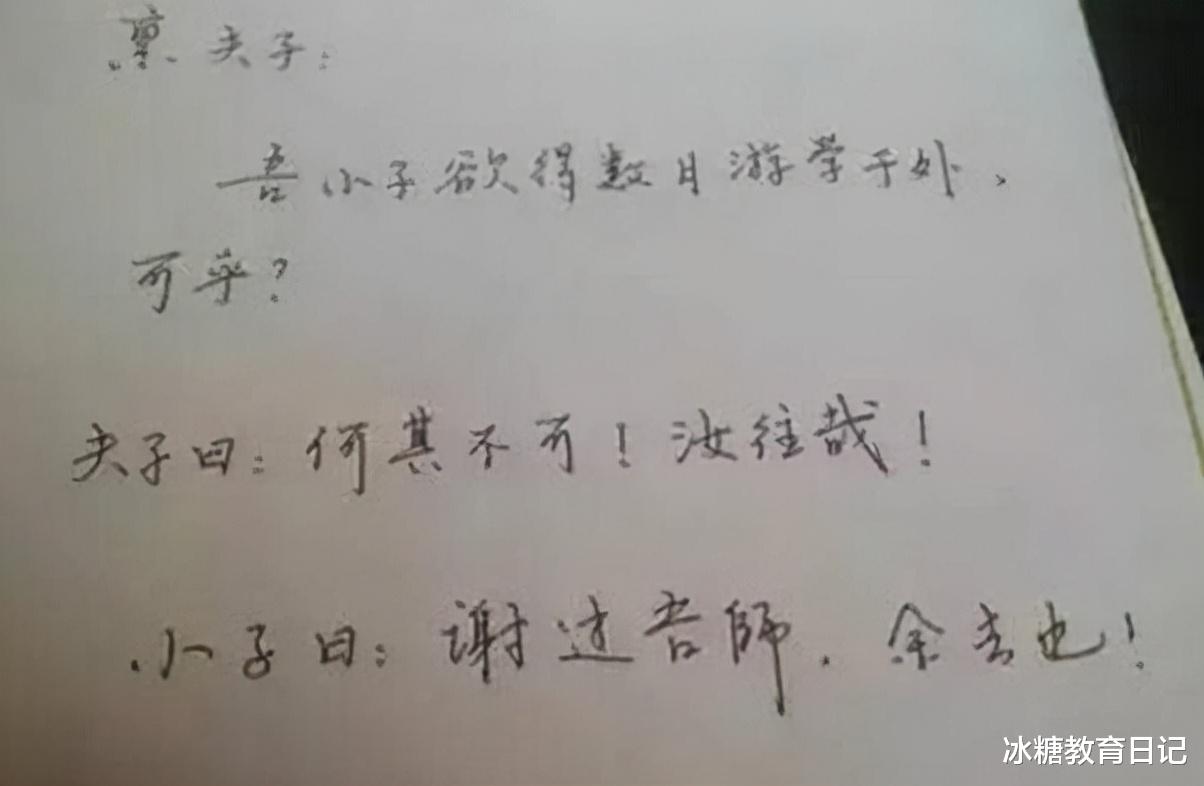 禀夫子:
吾小子欲得数日游学于外,
可乎?
夫子曰:何其不可!汝往哉!
小子曰:谢过吾師,余去也!
冰糖教育日记